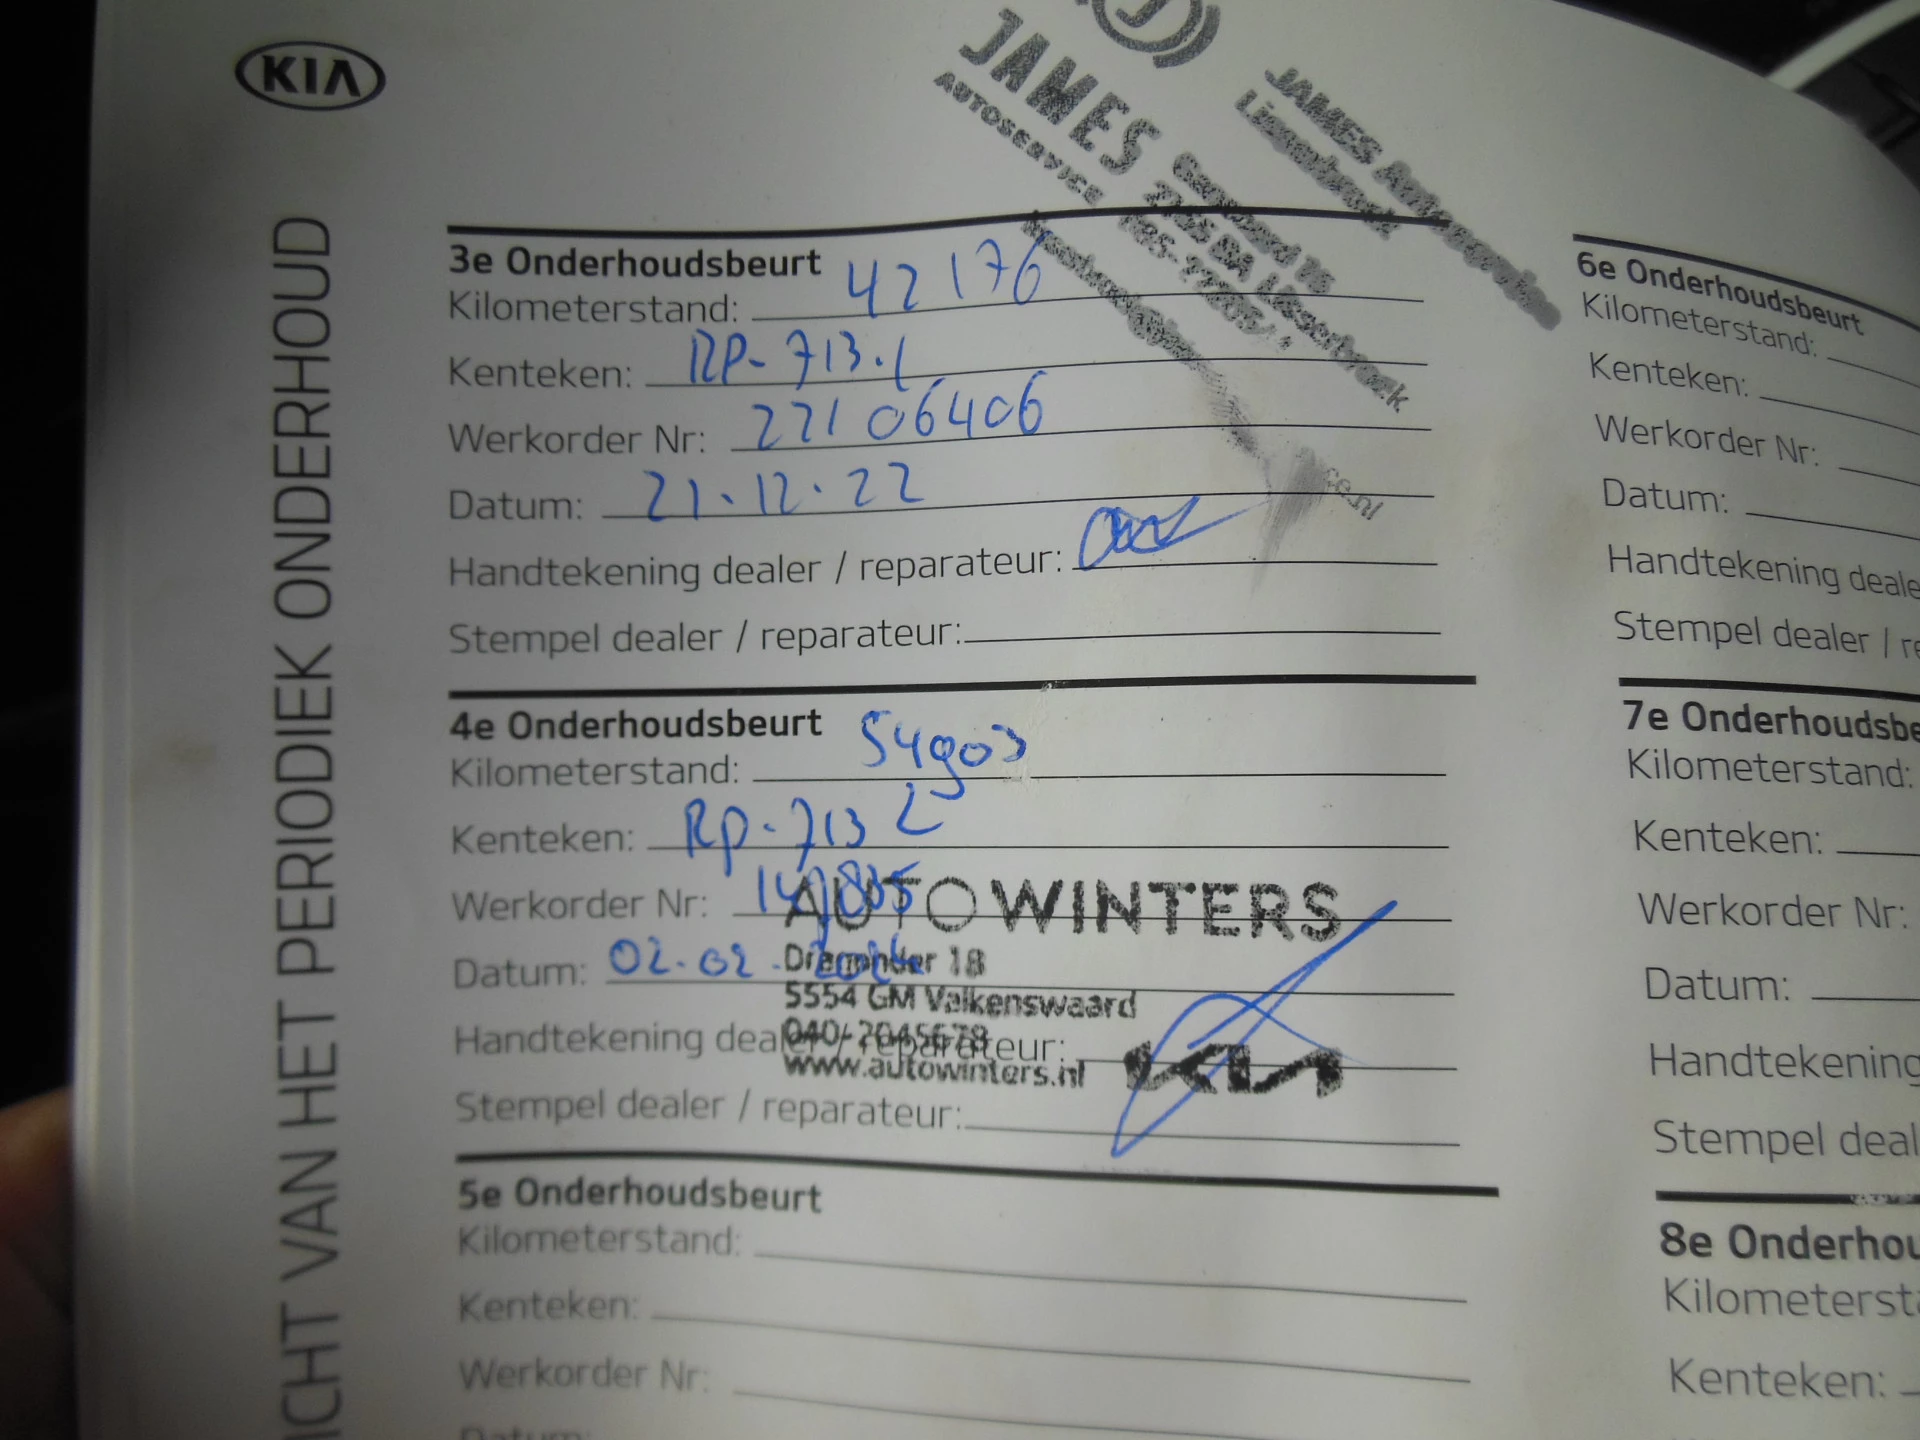 KIA
JAMES
AUTOSERVICE
JAMES
3e Onderhoudsbeurt
Kilometerstand: 42176
Kenteken: RP-713-L
Werkorder Nr: 22106406
Datum: 21-12-22
Handtekening dealer / reparateur:
Stempel dealer / reparateur:
4e Onderhoudsbeurt
Kilometerstand: 54903
Kenteken: Rp-713 L
Werkorder Nr:
AUTO WINTERS
Datum: 02-02-
18
5554 GM Valkenswaard
Handtekening dealer / reparateur:
040-2045678
www.autowinters.nl
KIA
Stempel dealer / reparateur:
5e Onderhoudsbeurt
Kilometerstand:
Kenteken:
Werkorder Nr:
Datum:
6e Onderhoudsbeurt
Kilometerstand:
Kenteken:
Werkorder Nr:
Datum:
Handtekening deale
Stempel dealer / re
7e Onderhoudsbe
Kilometerstand:
Kenteken:
Werkorder Nr:
Datum:
Handtekening
Stempel deal
8e Onderhou
Kilometersta
Kenteken:
ICHT VAN HET PERIODIEK ONDERHOUD